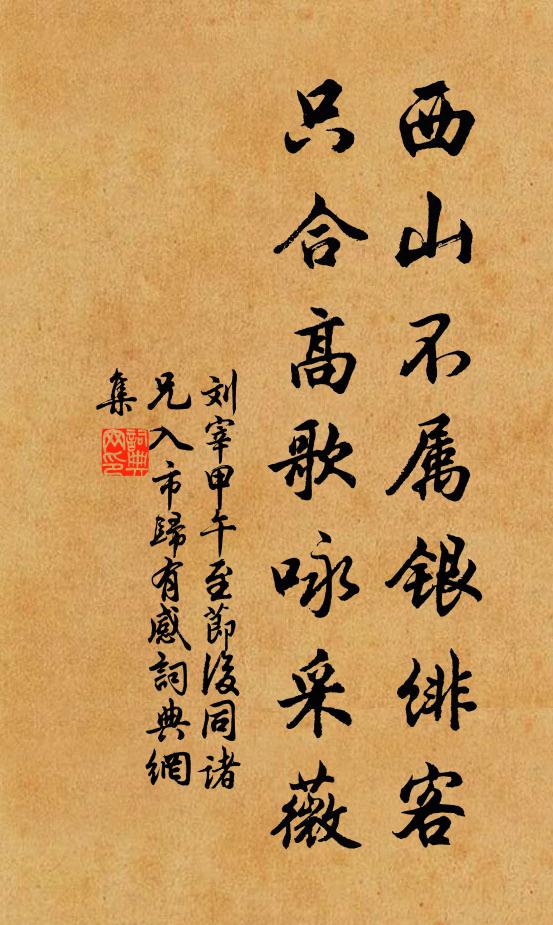 西山不属银绯客
只合高歌咏采薇
刘宰甲午至節後同诸
兄入市歸有感詞典網
集
詞典网印